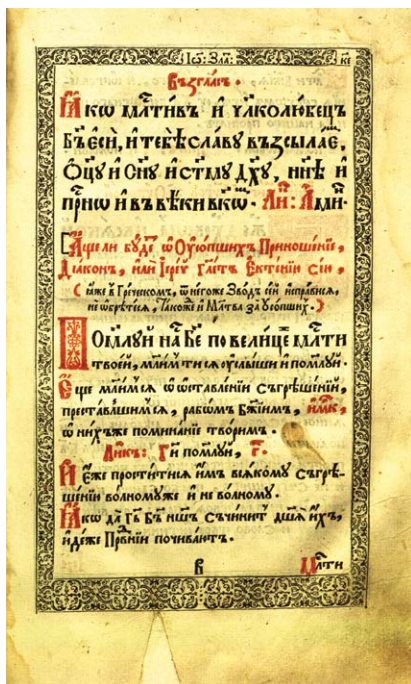 Іѡ: Зла: к҃и
Възгласъ.
Ꙗкѡ млⷭ҇тивъ и҆ чл҃колюбецъ
Бъ҃ є҆сѝ, и҆ тебѣ̀ славу възсылаⷨ҇е,
Ѻ҆ц҃у и҆ Сн҃у и҆ ст҃му дх҃у, нн҃ѣ и҆
прⷭ҇нѡ и҆ въ вѣ́ки вѣкѡⷨ. Лиⷦ: А҆ми́нь.
А҆ще ли бу́детъ ѡ҆ Оу҆со́пшихъ Приноше́нїе,
Дїа́конъ, или І҆ере́й гл҃етъ Е҆ктенїи Сїи,
( а҆́же в Гре́ческомъ, ѿ негоже Зво́дъ се́й и҆спра́вися,
не ѡ҆брѣ́теся, Тако́же и҆ Мл҃тва за Оу҆со́пших.)
Поми́луй на́съ Бж҃е по вели́цей млⷭ҇ти
твое́й, мли́м ти ся оу҆слы́ши и҆ поми́луй.
Е҆ще мли́мся ѡ҆ ѡ҆ставле́нїи съгрѣше́нїй,
преста́вльшимъся, рабѡ́мъ Бж҃їимъ, и҆мⷬ҇къ,
ѡ҆ ни́хъже помина́нїе твори́мъ.
Ли́къ: Гⷭ҇и поми́луй, г҃.
И҆ е҆́же прости́тися и҆́мъ вся́кому съгрѣ-
ше́нїю во́лному же и҆ не во́лному.
Ꙗкѡ да Гь҃ Бъ҃ нш҃ъ съчини́т дш҃а и҆́хъ,
и҆дѣ́же Пра́внїи почива́ютъ.
в҃ Млⷭ҇ти